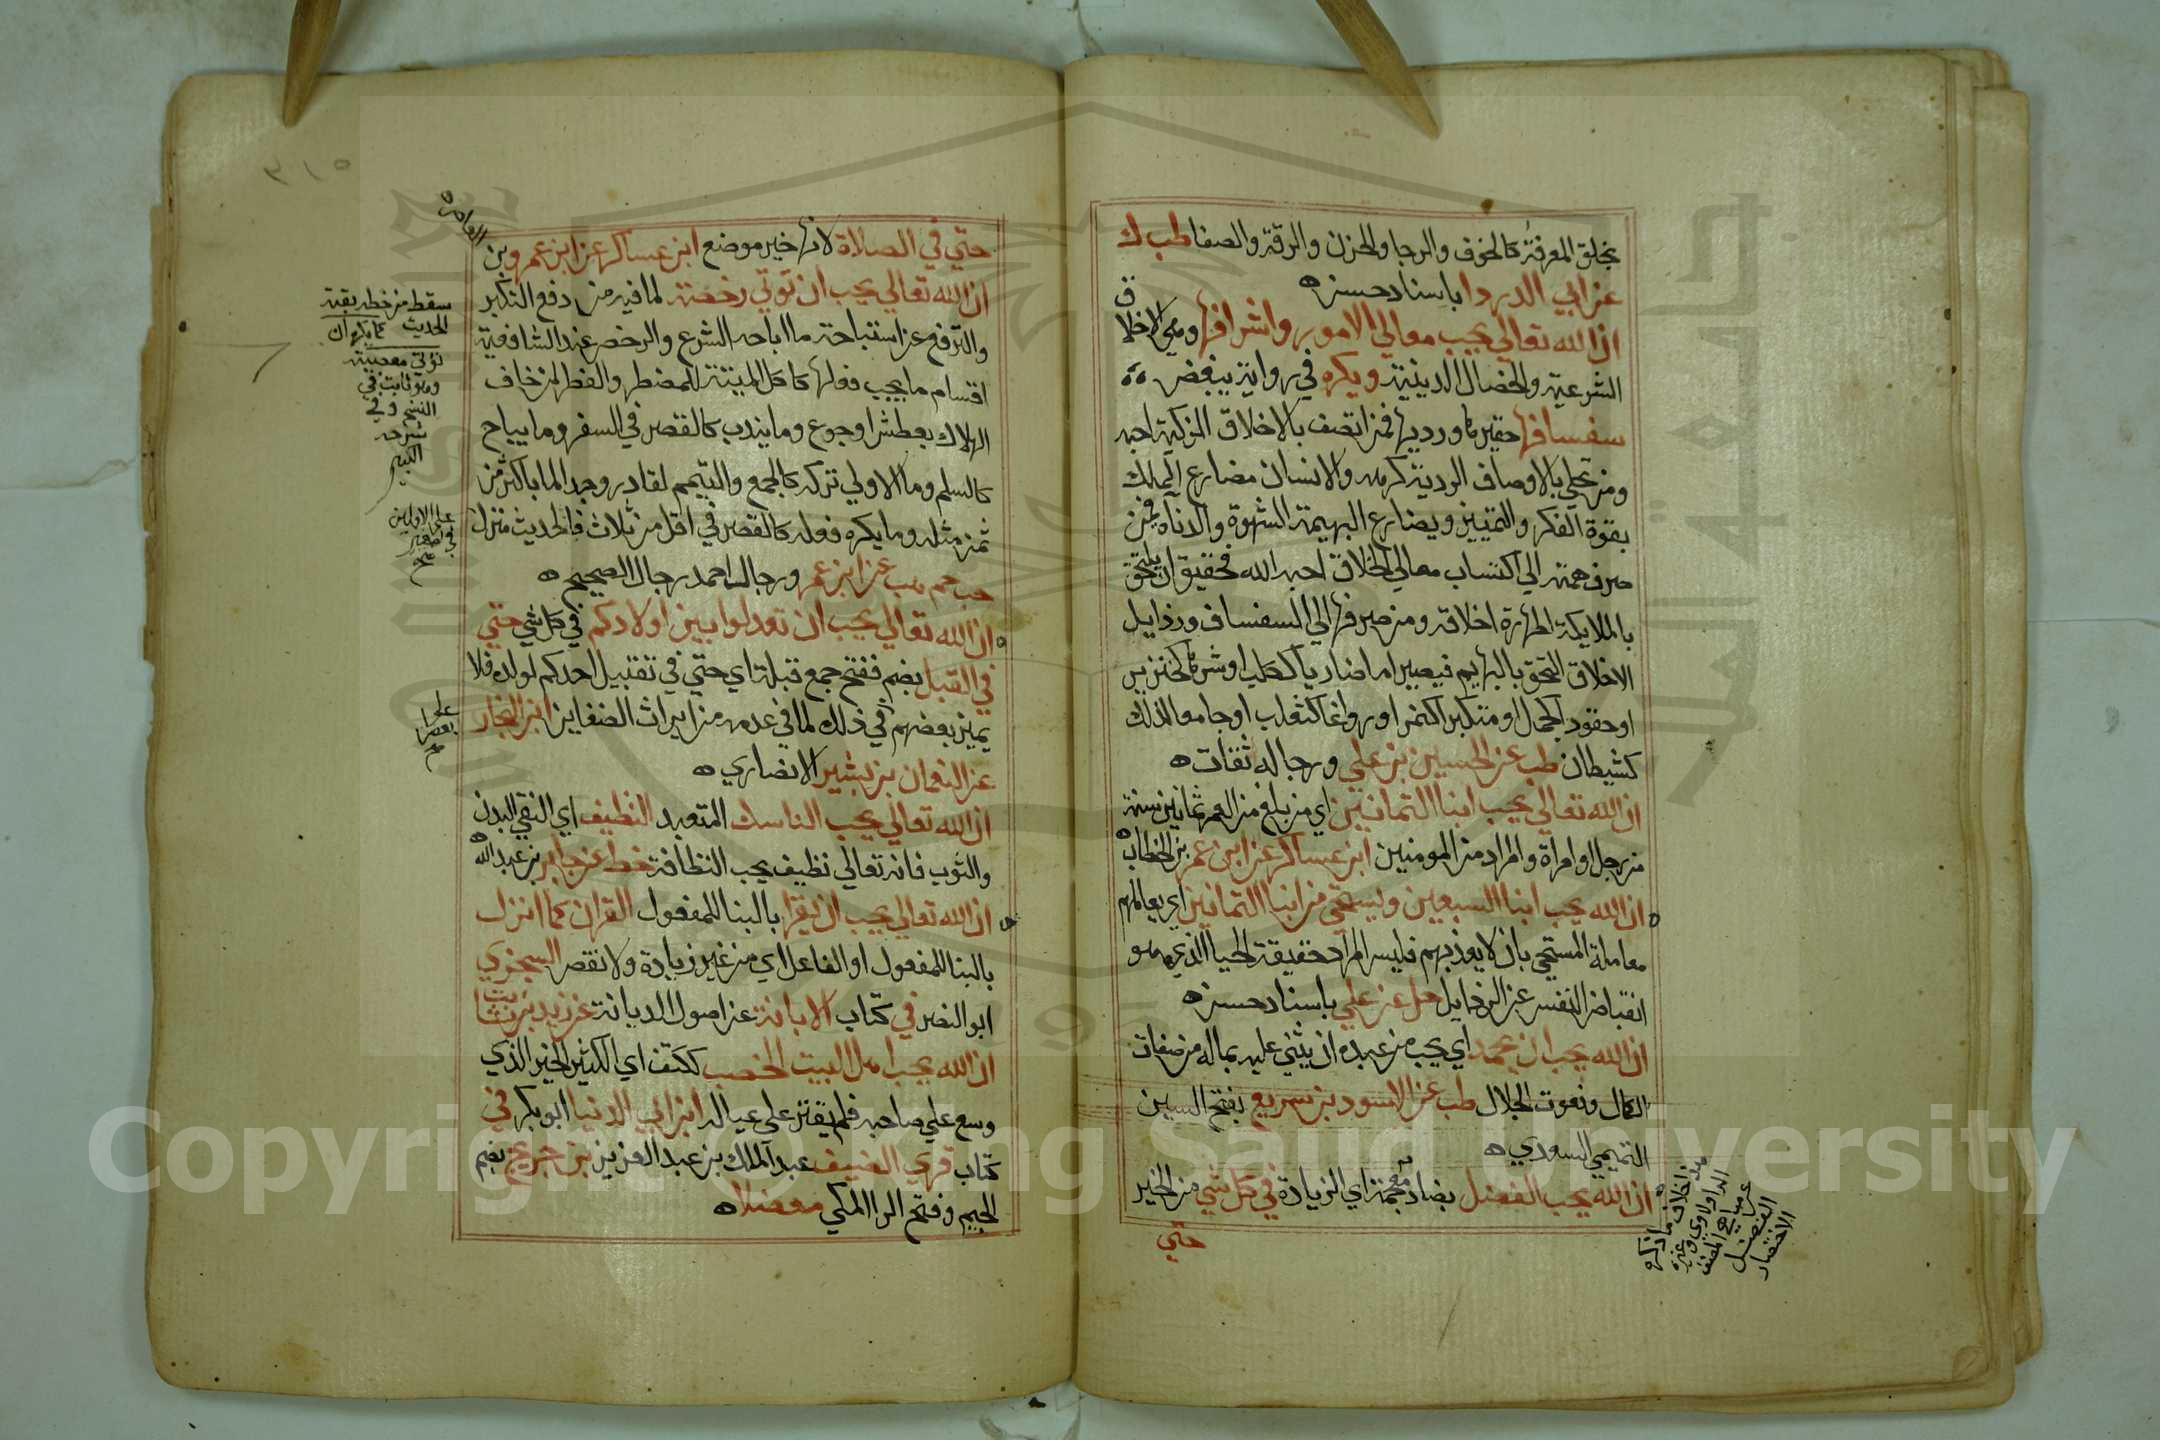 بخلق المعرفة كالخوف والرجا والحزن والرقة والصفا طب ك
عن ابي الدردا باسناد حسن ه
ان الله تعالي يحب معالي الامور واشرافها وهي الاخلاق
الشرعية والخصال الدينية ويكره في رواية يبغض
سفسافها حقيرها ورديها فمن اتصف بالاخلاق الزكية احبه
ومن تحلي بالاوصاف الردية كرهه والانسان مضارع الملك
بقوة الفكر والتمييز ويضارع البهيمة الشهوة والدناه فمن
صرف همته الي اكتساب معالي الاخلاق احبه الله فحقيق ان يلتحق
بالملايكة لطهارة اخلاقه ومن صرفها الي السفساف ورذايل
الاخلاق التحق بالبهايم فيصير اما ضاريا ككلب او شرها كخنزير
او حقود كجمل او متكبر اكنمر او رواغا كثعلب او جامعا لذلك
كشيطان طب عن الحسين بن علي ورجاله ثقات ه
ان الله تعالي يحب ابنا الثمانين اي من بلغ من العمر ثمانين سنة
من رجل او امراة والمراد من المومنين ابن عساكر عن ابن عمر بن الخطاب ه
ان الله يحب ابنا السبعين ويستحي من ابنا الثمانين اي يعاملهم
معاملة المستحي بان لا يعذبهم فليس المراد حقيقة الحيا الذي هو
انقباض النفس عن الرذايل حل عن علي باسناد حسن ه
ان الله يحب ان يحمد اي يحب من عبده ان يثني عليه بماله من صفات
الكمال ونعوت الجلال طب عن الاسود بن سريع بفتح السين
التميمي السعدي ه
ان الله يحب الفضل بضاد معجمة اي الزيادة في كل شي من الخير
حتي
٣١٥
حتي في الصلاة لانها خير موضع ابن عساكر عن ابن عمرو بن
العاص ه
ان الله تعالي يحب ان توتي رخصته لما فيه من دفع التكبر
والترفع عن استباحة ما اباحه الشرع والرخص عند الشافعية
اقسام ما يجب فعلها كاكل الميتة للمضطر والفطر لمن خاف
الهلاك بعطش او جوع وما يندب كالقصر في السفر وما يباح
كالسلم وما الاولي تركه كالجمع والتيمم لقادر وجد الما باكثر من
ثمن مثله وما يكره فعله كالقصر في اقل من ثلاث فالحديث منزل
حب حم هب عن ابن عمر ورجال احمد رجال الصحيح ه
ان الله تعالي يحب ان تعدلوا بين اولادكم في كل شي حتي
في القبل بضم ففتح جمع قبلة اي حتي في تقبيل احدكم لولده فلا
يميز بعضهم في ذلك لما في عدمه من ايراث الضغاين ابن النجار
عن النعمان بن بشير الانصاري ه
ان الله تعالي يحب الناسك المتعبد النظيف اي النقي البدن
والثوب فانه تعالي نظيف يحب النظافة خط عن جابر بن عبد الله ه
ان الله تعالي يحب ان يقرا بالبنا للمفعول القران كما انزل
بالبنا للمفعول او الفاعل اي من غير زيادة ولا نقص السجزي
ابو النصر في كتاب الابانة عن اصول الديانة عن زيد بن ثابت
ان الله يحب اهل البيت الخصب ككتف اي الكثير الخير الذي
وسع علي صاحبه فلم يقتر علي عياله ابن ابي الدنيا ابو بكر في
كتاب قري الضيف عبد الملك بن عبد العزيز بن جريج بضم
الجيم وفتح الرا المكي معضلا ه
سقط من خطه بقية
الحديث كما يكره ان
توتي معصيته
وهو ثابت في
النسخ وفي
شرحه
الكبير
علي الاولين
صح
علي
بعض
صح
Copyright © King Saud University